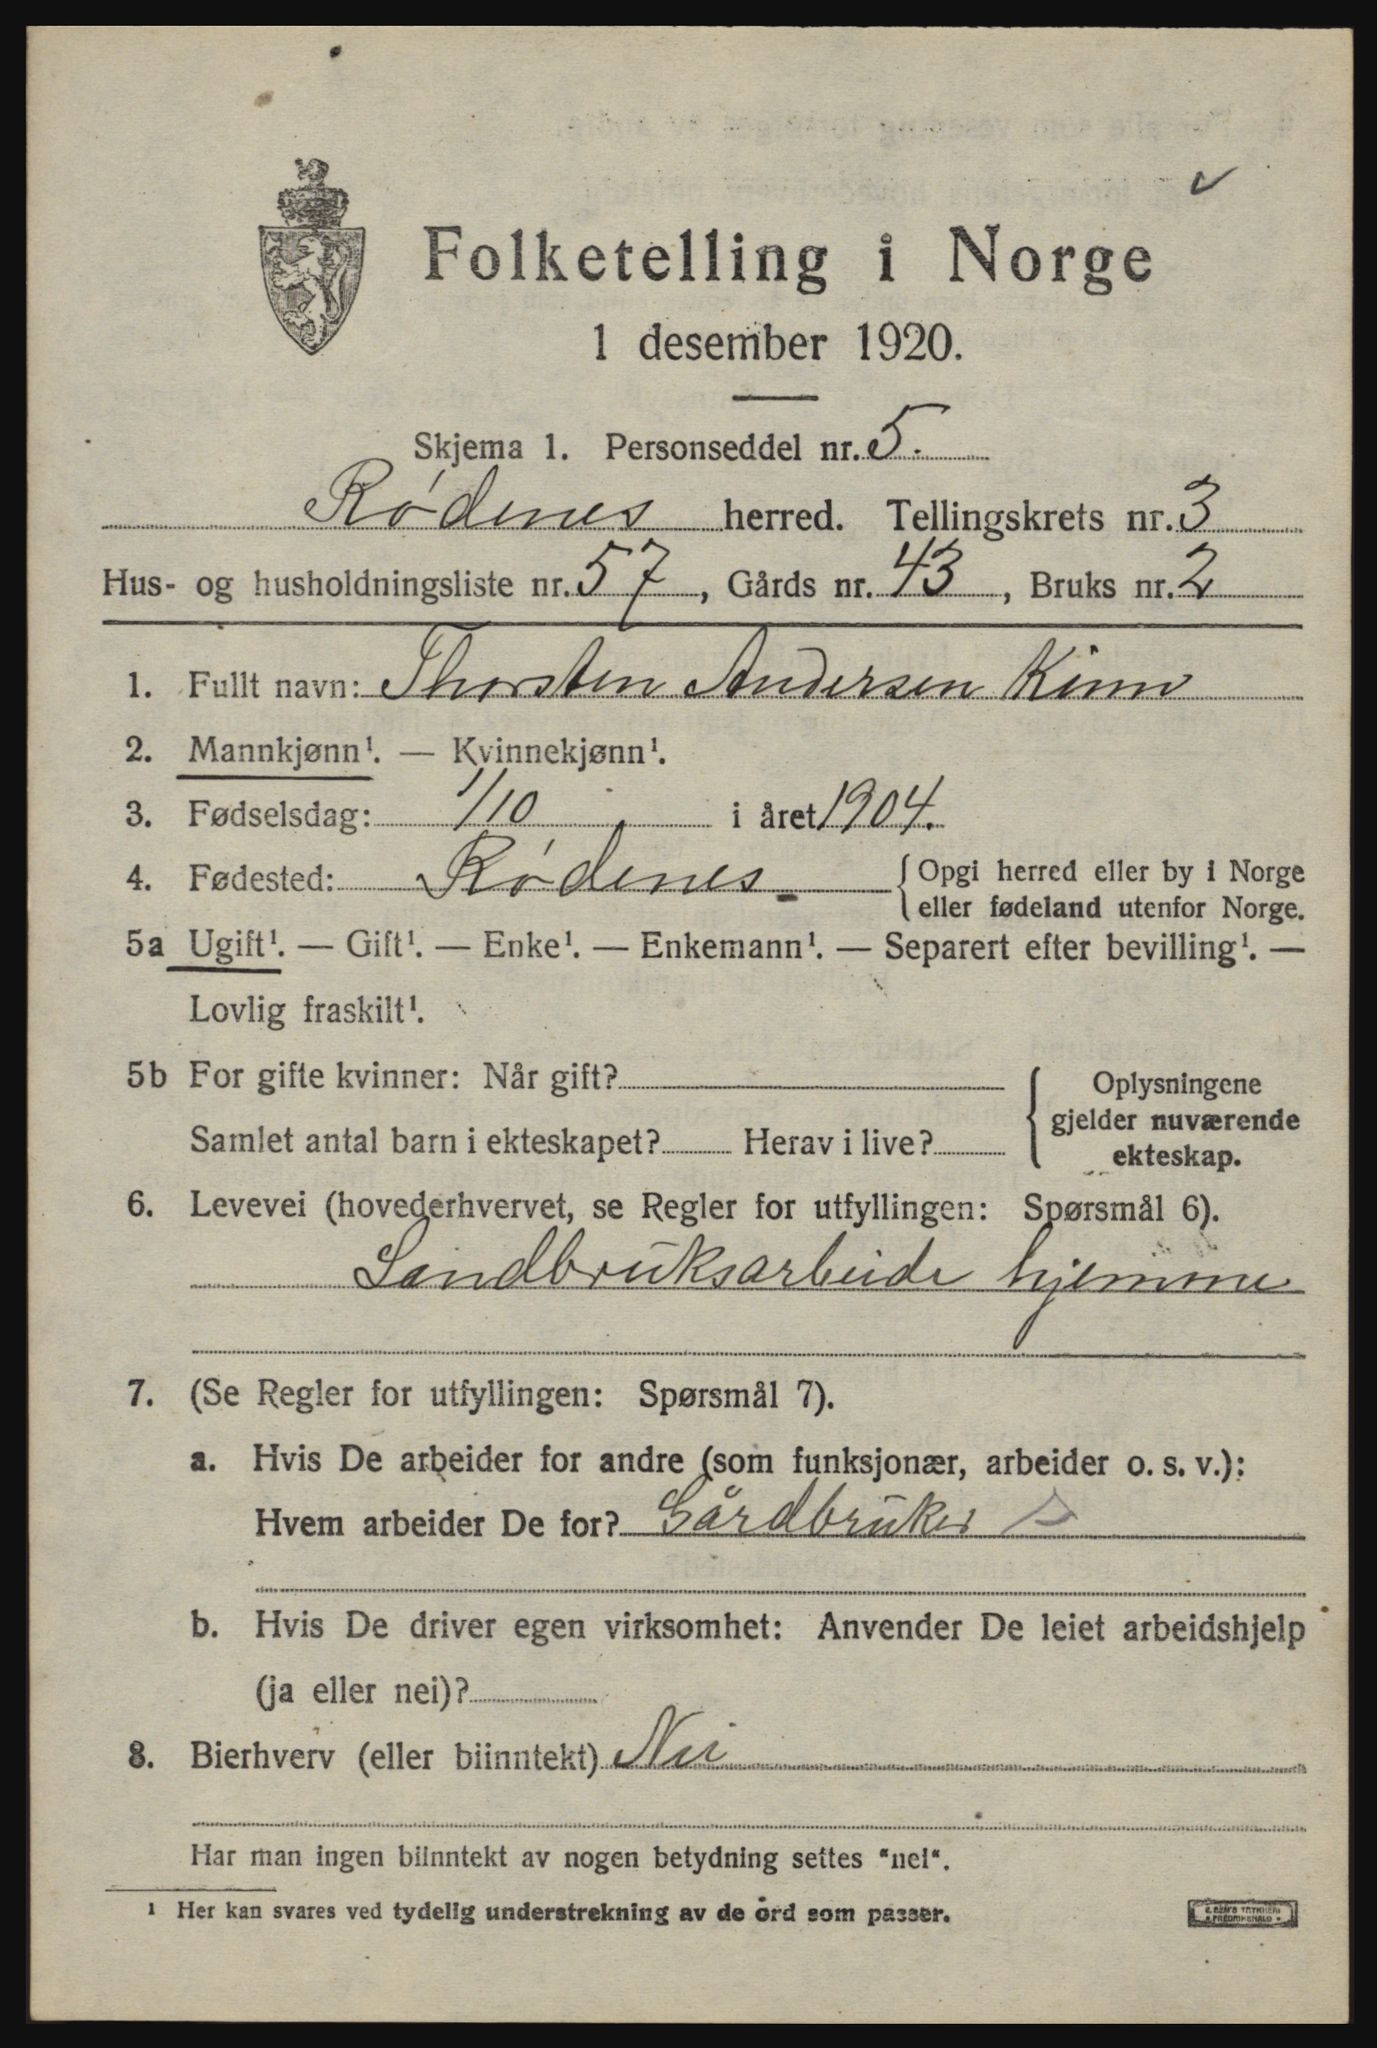 Folketelling i Norge
1 desember 1920.
Skjema 1. Personseddel nr. 5.
Rødenes herred. Tellingskrets nr. 3
Hus- og husholdningsliste nr. 57, Gårds nr. 43, Bruks nr. 2
1. Fullt navn: Thorsten Andersen Kinn
2. Mannkjønn¹. — Kvinnekjønn¹.
3. Fødselsdag: 1/10 i året 1904.
4. Fødested: Rødenes { Opgi herred eller by i Norge
eller fødeland utenfor Norge.
5a Ugift¹. — Gift¹. — Enke¹. — Enkemann¹. — Separert efter bevilling¹. —
Lovlig fraskilt¹.
5b For gifte kvinner: Når gift? { Oplysningene
gjelder nuværende
Samlet antal barn i ekteskapet? Herav i live? ekteskap.
6. Levevei (hovederhvervet, se Regler for utfyllingen: Spørsmål 6).
Landbruksarbeide hjemme
7. (Se Regler for utfyllingen: Spørsmål 7).
a. Hvis De arbeider for andre (som funksjonær, arbeider o. s. v.):
Hvem arbeider De for? Gårdbruker
b. Hvis De driver egen virksomhet: Anvender De leiet arbeidshjelp
(ja eller nei)?
8. Bierhverv (eller biinntekt) Nei
Har man ingen biinntekt av nogen betydning settes "nei".
¹ Her kan svares ved tydelig understrekning av de ord som passer.